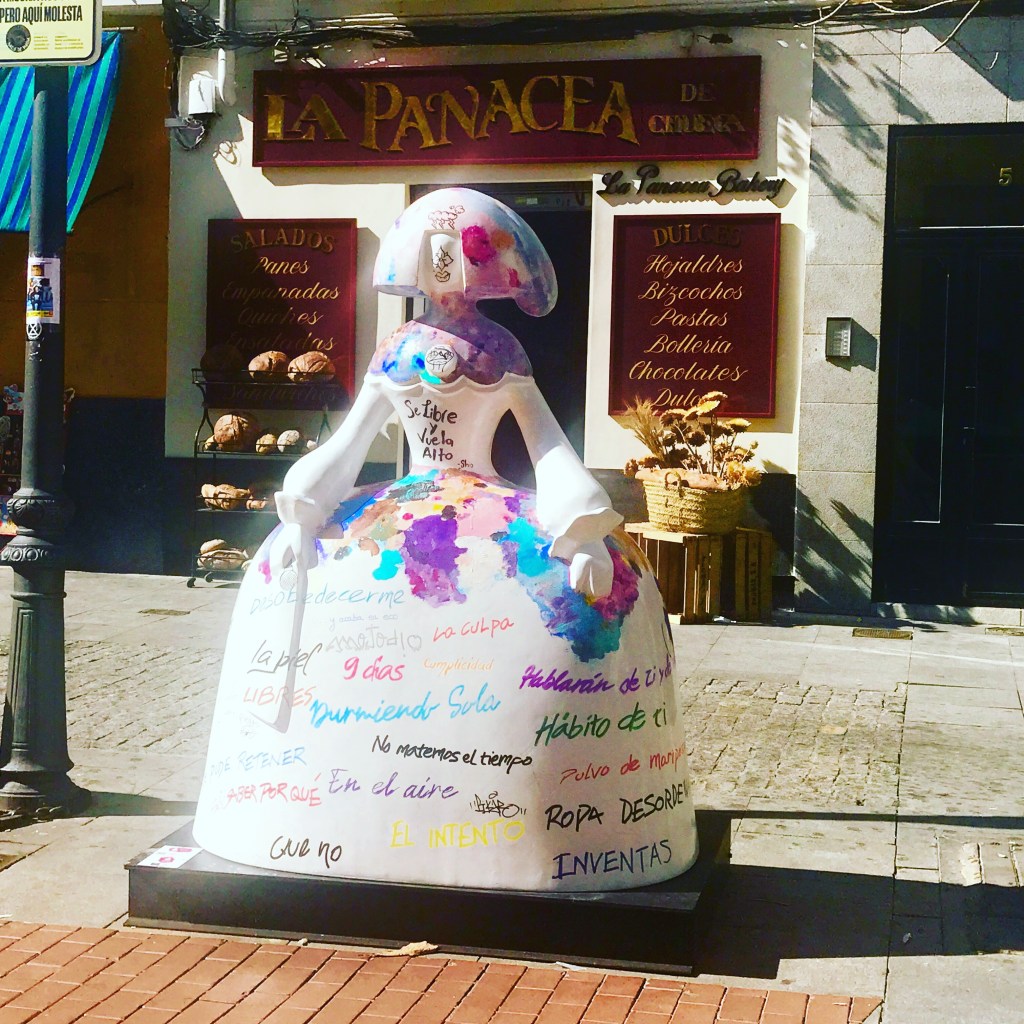 PERO AQUÍ MOLESTA
LA PANACEA
DE
CHUECA
La Panacea Bakery
5
SALADOS
Panes
Empanadas
Quiches
Ensaladas
Sandwiches
DULCES
Hojaldres
Bizcochos
Pastas
Bollería
Chocolates
Se Libre
y
Vuela
Alto
-Sho
DESOBedecerme
LA CULPA
la piel
9 días
Complicidad
Hablarán de ti y
LIBRES
Durmiendo Sola
Hábito de ti
No matemos el tiempo
RETENER
Polvo de
ABER POR QUÉ
En el aire
ROPA DESORDE
EL INTENTO
QUE NO
INVENTAS